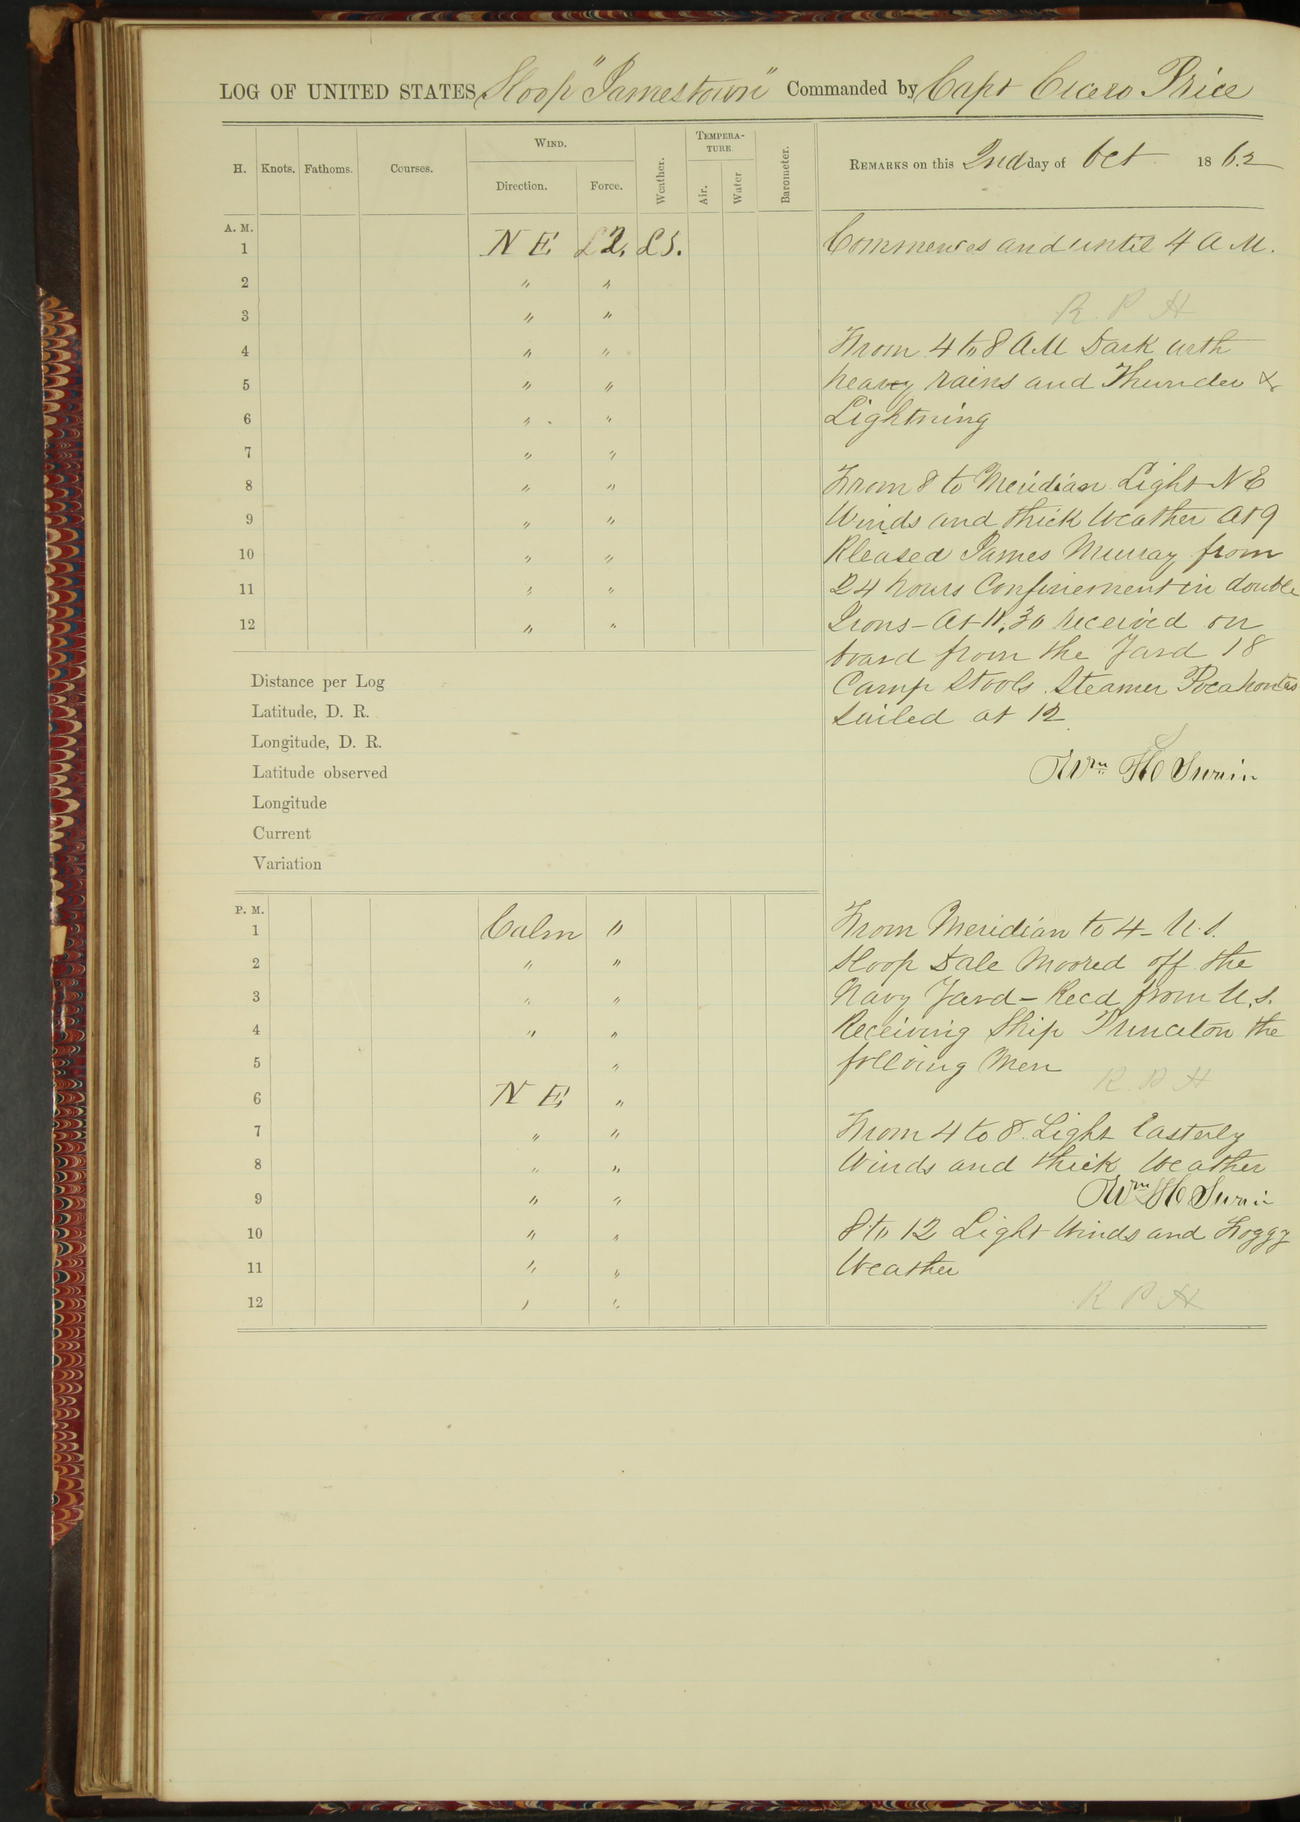 LOG OF UNITED STATES Sloop "Jamestown" Commanded by Capt Cicero Price
H. Knots. Fathoms. Courses. WIND. Direction. Force. Weather. TEMPERATURE Air. Water Barometer. REMARKS on this 2nd day of Oct 1862
A. M.
1 N E Commences and until 4 A M.
2 " "
3 " " R. P H
4 " " From 4 to 8 AM Dark with
5 " " heavy rains and Thunder &
6 " " Lightning
7 " "
8 " " From 8 to Meridian Light N E
9 " " Winds and thick Weather At 9
10 " " Rleased James Murray from
11 " " 24 hours Confinement in double
12 " " Irons - At 11,30 received on
board from the Yard 18
Camp Stools. Steamer Pocahontas
Sailed at 12
Wm H Swain
Distance per Log
Latitude, D. R.
Longitude, D. R.
Latitude observed
Longitude
Current
Variation
P. M.
1 Calm " From Meridian to 4 - U. S.
2 " " Sloop Dale Moored off the
3 " " Navy Yard - Recd from U. S.
4 " " Receiving Ship Princeton the
5 " folloing Men
R. P H
6 N E "
7 " " From 4 to 8. Light Easterly
8 " " Winds and thick Weather
9 " " Wm H Swain
10 " " 8 to 12 Light Winds and Foggy
11 " " Weather
12 " " R P H